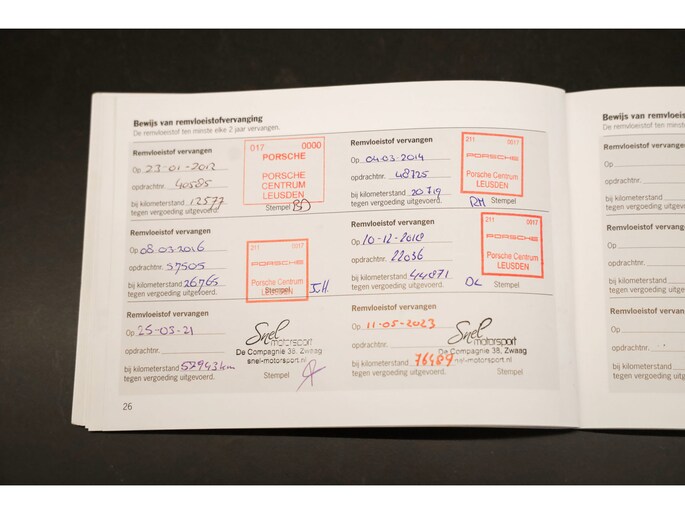 Bewijs van remvloeistofvervanging
De remvloeistof ten minste elke 2 jaar vervangen.
Remvloeistof vervangen
Op 23-01-2012
opdrachtnr. 40585
bij kilometerstand 12577
tegen vergoeding uitgevoerd.
017 0000
PORSCHE
PORSCHE
CENTRUM
LEUSDEN
Stempel
Remvloeistof vervangen
Op 04-03-2014
opdrachtnr. 48725
bij kilometerstand 20719
tegen vergoeding uitgevoerd.
211 0017
PORSCHE
Porsche Centrum
LEUSDEN
RM Stempel
Remvloeistof vervangen
Op 08-03-2016
opdrachtnr. 57505
bij kilometerstand 26765
tegen vergoeding uitgevoerd.
211 0017
PORSCHE
Porsche Centrum
LEUSDEN
Stempel
Remvloeistof vervangen
Op 10-12-2018
opdrachtnr. 22036
bij kilometerstand 44871
tegen vergoeding uitgevoerd.
211 0017
PORSCHE
Porsche Centrum
LEUSDEN
Stempel
Remvloeistof vervangen
Op 25-05-21
opdrachtnr.
bij kilometerstand 52943 km
tegen vergoeding uitgevoerd.
Snel
motorsport
De Compagnie 38, Zwaag
snel-motorsport.nl
Stempel
Remvloeistof vervangen
Op 11-05-2023
opdrachtnr.
bij kilometerstand 76489
tegen vergoeding uitgevoerd.
Snel
motorsport
De Compagnie 38, Zwaag
snel-motorsport.nl
Stempel
26
Remvloeistof
Op
opdrachtnr.
bij kilometers
tegen vergoed
Remvloeistof v
Op
opdrachtnr.
bij kilometersta
tegen vergoedin
Remvloeistof ve
Op
opdrachtnr.
bij kilometerstan
tegen vergoeding